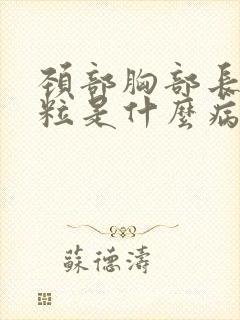 頚部胸部長
粒是什麼病
蘇德濤